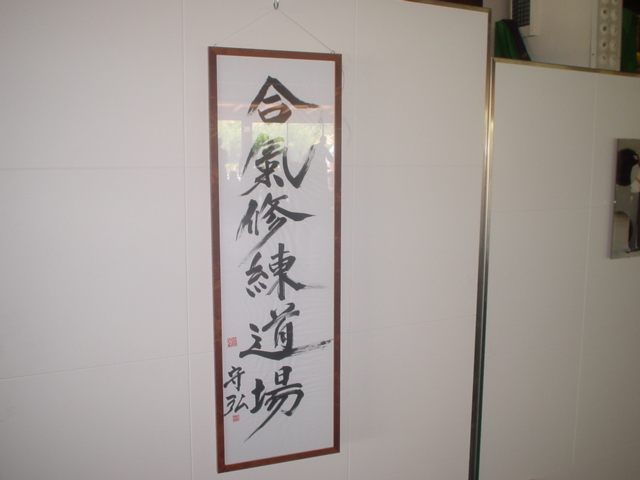 合氣修練道場
守弘